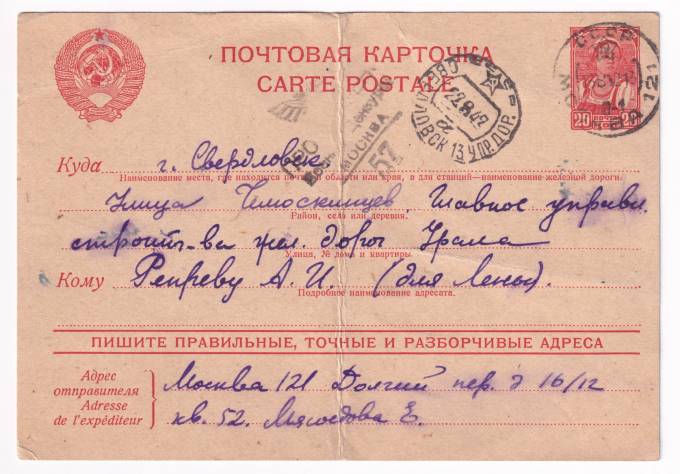 ПОЧТОВАЯ КАРТОЧКА
CARTE POSTALE
СССР
МОСКВА
121
20 ПОЧТА 20
22 42
СВЕРДЛОВСК 13 УПР. ДОР.
МОСКВА
57
Куда г. Свердловск
Наименование места, где находится почта, и области или края, а для станций—наименование железной дороги.
Улица Главное управл.
Район, село или деревня.
строит-ва жел. дорог Урала
Улица, № дома и квартиры
Кому Репреву А. И. (для Лены).
Подробное наименование адресата.
ПИШИТЕ ПРАВИЛЬНЫЕ, ТОЧНЫЕ И РАЗБОРЧИВЫЕ АДРЕСА
Адрес отправителя
Adresse de l'expéditeur
Москва 121 Долгий пер. д 16/12
кв. 52. Мясоедова Е.